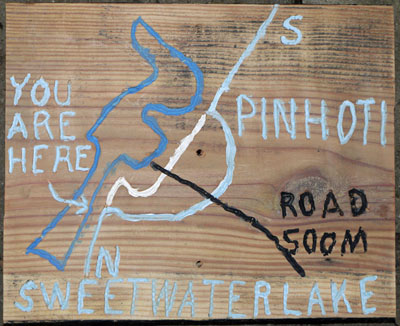 S
YOU
ARE
HERE
PINHOTI
ROAD
500M
N
SWEETWATER LAKE